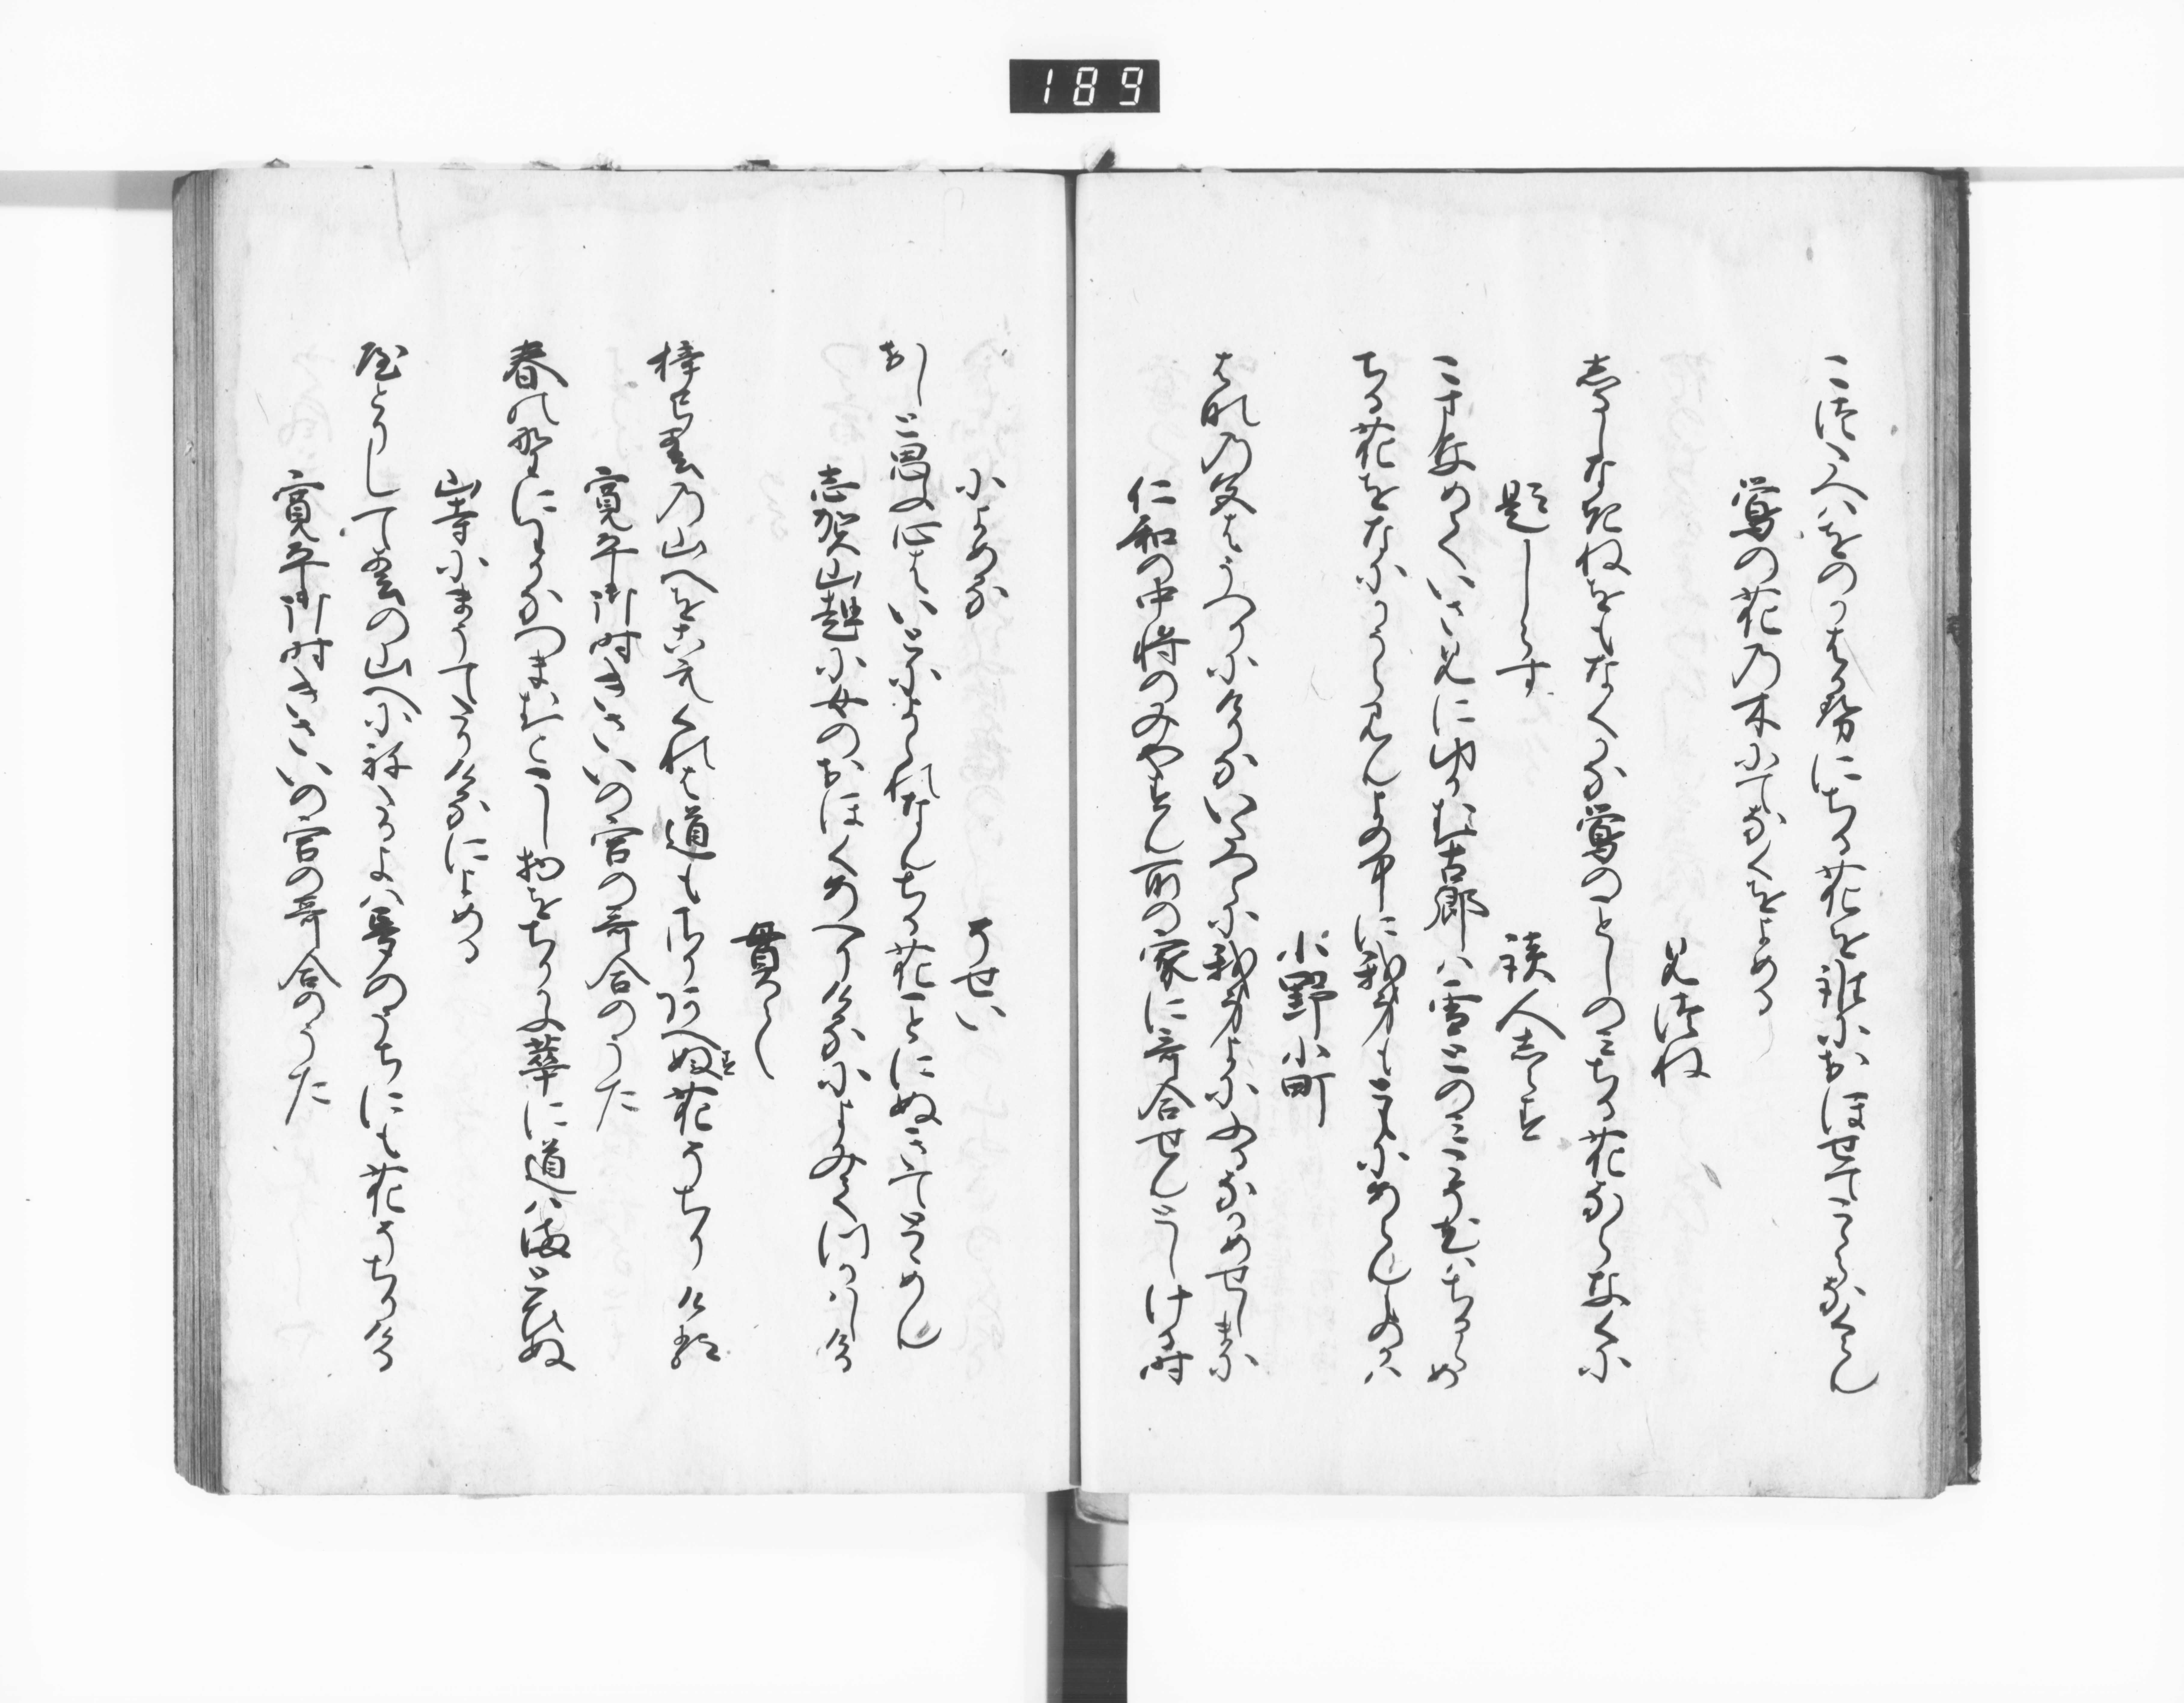 189
こつたへはをのかは勢にちる花を誰におほせてこゝらなくらん
鶯の花の木にてなくをよめる
みつね
志るしなきねをもなくかな鶯のことしのミちる花ならなくに
題しらす
讀人志らす
こまなめていさ見にゆかむ古郷ハ雪とのミこそ花ハちるらめ
ちる花をなにかうらみん世の中に我身もともにあらん物かハ
小野小町
はなの色はうつりにけりないたつらに我身よにふるなかめせしまに
仁和の中将のみやすん所の家に哥合せんとしける時
によめる
そせい
おしと思心はいとによられなんちる花ことにぬきてとゝめん
志賀山越に女のおほくあへりけるによみてつかはしける
貫之
梓弓春乃山へをこえくれは道もさりあへす花そちりける
寛平御時きさいの宮の哥合のうた
春の野にわかなつまむとこし物をちりかふ花に道ハまとひぬ
山寺にまうてたりけるによめる
屋とりして春の山へにねたるよハ夢のうちにも花そちりける
寛平御時きさいの宮の哥合のうた